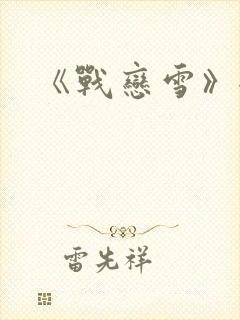 《戰戀雪》
雷先祥